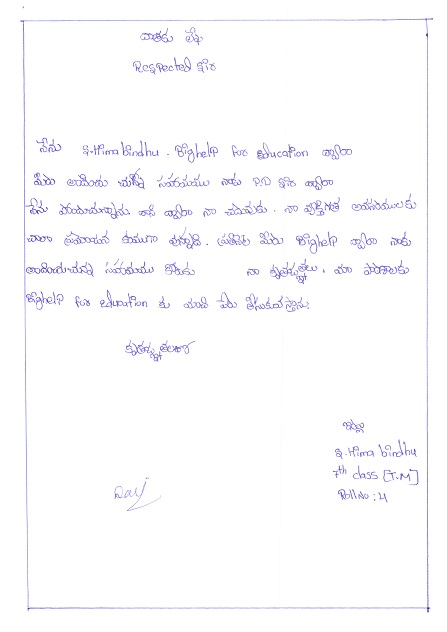 దాతకు లేఖ
Respected సార్
నేను ఇ.Hima bindhu. Bighelp for education ద్వారా
మీరు అందించు చున్న సహాయము నాకు P.D సార్ ద్వారా
నేను పొందుచున్నాను. దాని ద్వారా నా చదువుకు. నా వ్యక్తిగత అవసరములకు
చాలా ప్రయోజన కరముగా ఉన్నది. ప్రతినెల మీరు Bighelp ద్వారా నాకు
అందించుచున్న సహాయము కొరకు నా కృతజ్ఞతలు. మా పాఠశాలకు
Bighelp for education కు మంచి పేరు తీసుకువస్తాను.
కృతజ్ఞతలతో
ఇట్లు
ఇ.Hima bindhu
7th class [T.M]
Roll No : 4